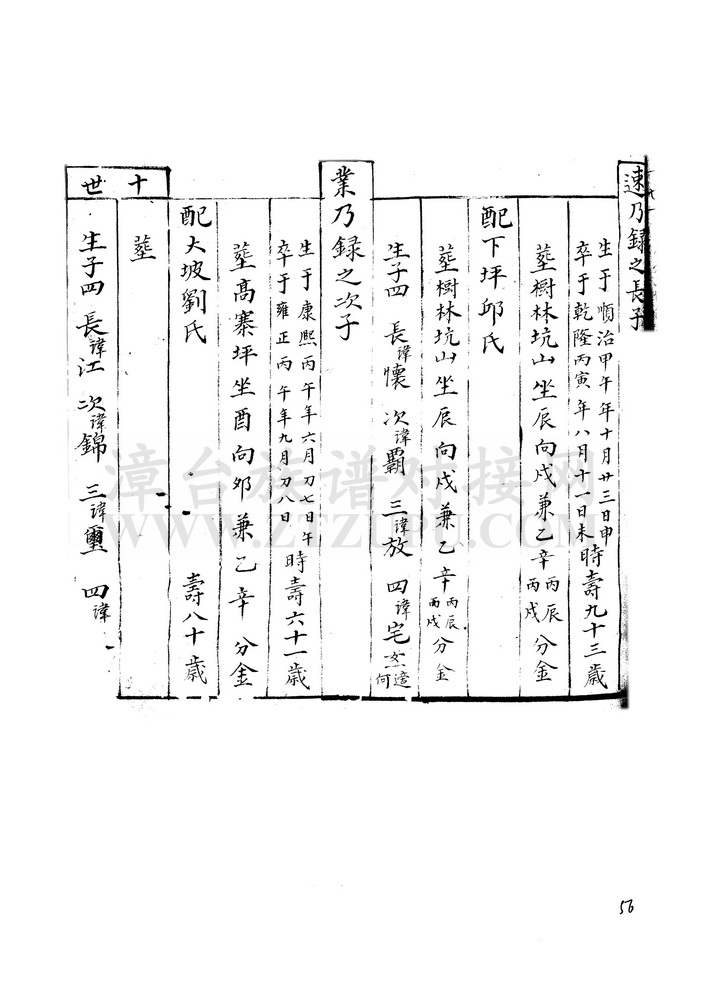 速乃録之長子
生于順治甲午年十月廿三日申
卒于乾隆丙寅年八月十一日未
時壽九十三歳
塟樹林坑山坐辰向戍兼乙辛丙辰丙戍分金
配下坪邱氏
塟樹林坑山坐辰向戍兼乙辛丙辰丙戍分金
生子四 長諱懷 次諱霸 三諱放 四諱宅
業乃録之次子
生于康熙丙午年六月刀七日午
卒于雍正丙午年九月刀八日
時壽六十一歳
塟高寨坪坐酉向夘兼乙辛分金
配大坡劉氏 壽八十歳
塟
十世
生子四 長諱江 次諱錦 三諱璽 四諱
漳台族谱对接网
WWW.ZTZUPU.COM
56